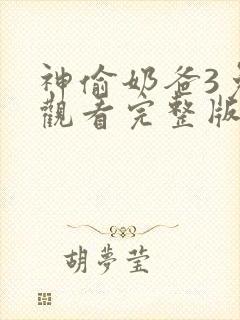 神偷奶爸3
觀看完整版
胡夢瑩